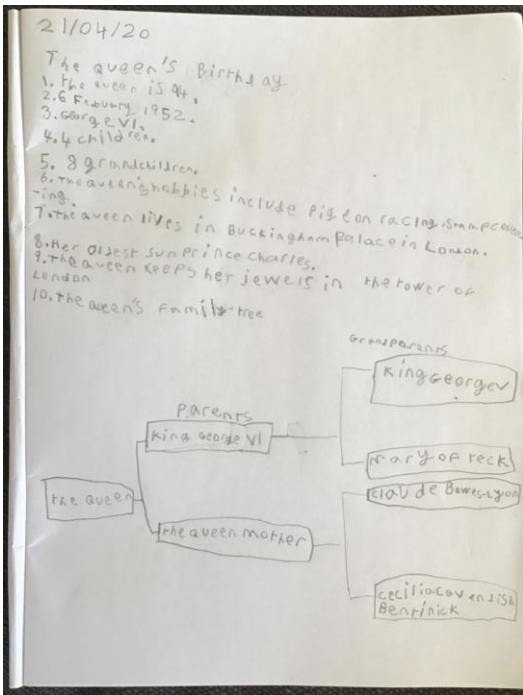 21/04/20
The queen's Birthday
1. the queen is 94.
2. 6 Febuary 1952.
3. George VI.
4. 4 children.
5. 8 grandchildren.
6. The queen's hobbies include pigeon racing, stamp
-ing.
7. the queen lives in Buckingham palace in London.
8. Her oldest sun prince charles.
9. The queen keeps her jewels in the tower of
London
10. The queen's family tree
Granparents
King George V
Parents
King George VI
Mary of teck
Claude Bowes-Lyon
the queen
the queen mother
cecilia cavendish
Bentinick